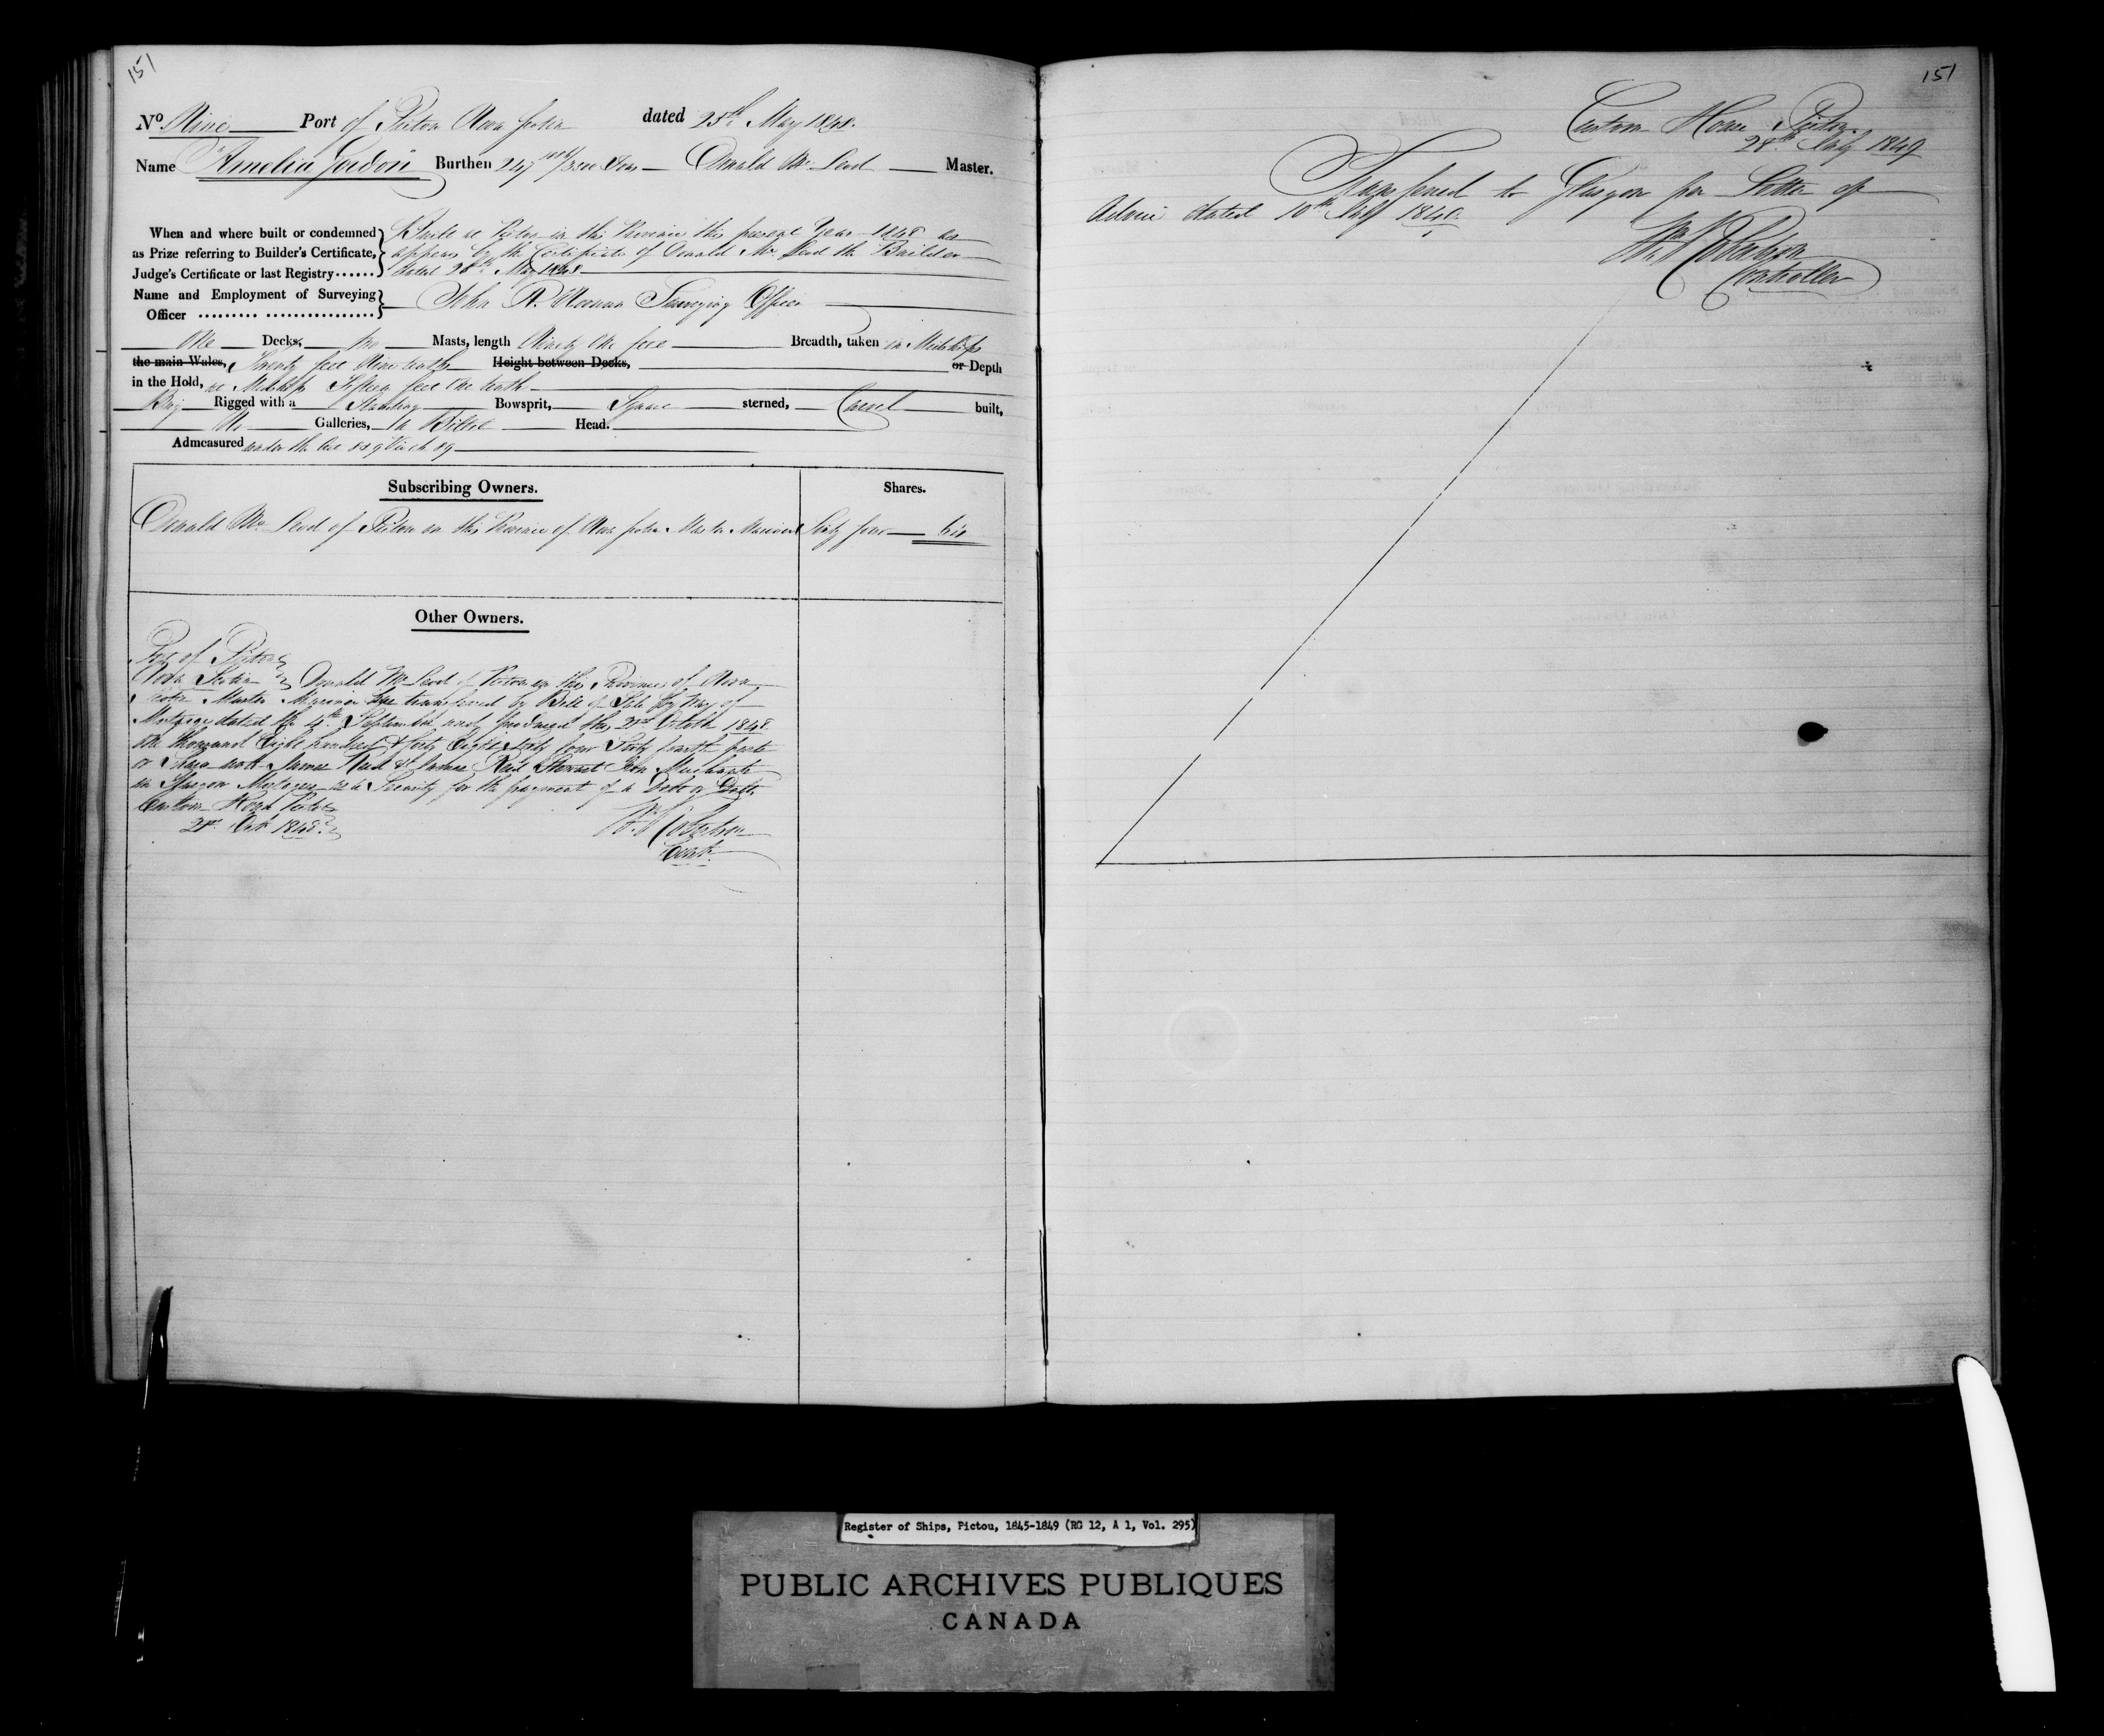 151
No Nine Port of Pictou Nova Scotia dated 25th May 1848.
Name "Amelia Gordon Burthen 247 /3500 Tons Donald Mc Leod Master.
When and where built or condemned as Prize referring to Builder's Certificate, Judge's Certificate or last Registry......
Built at Pictou in this Province this present Year 1848 as
appears by the Certificate of Donald Mc Leod the Builder
dated May 1848
Name and Employment of Surveying Officer ......... ................
John R. Noonan Surveying Officer
One Decks, Two Masts, length Ninety One feet Breadth, taken in Midships
the main Wales, Twenty feet Nine tenths Height between Decks, or Depth
in the Hold, at Midships Fifteen feet One tenth
Brig Rigged with a Standing Bowsprit, Square sterned, Carvel built,
No Galleries, a Billet Head.
Admeasured under the Act 8 & 9 Vic ch 89
Subscribing Owners. Shares.
Donald Mc Leod of Pictou in this Province of Nova Scotia Master Mariner Sixty four 64
Other Owners.
Port of Pictou
Nova Scotia Donald Mc Leod of Pictou in this Province of Nova
Scotia Master Mariner has transferred by Bill of Sale by Way of
Mortgage dated the 4th September and produced this 21st October 1848
One thousand Eight hundred & forty Eight Sixty four Sixty fourth parts
or Shares unto James Reid & James Reid Stewart Iron Merchants
in Glasgow Mortgagees as a Security for the payment of a Debt or Debts
Custom House Pictou
21st Octr 1848. Wm Robertson
Contr.
151
Custom House Pictou
28th July 1849
Transferred to Glasgow per Letter of
Advice dated 10th July 1849.
Wm Robertson
Controller
Register of Ships, Pictou, 1845-1849 (RG 12, A 1, Vol. 295)
PUBLIC ARCHIVES PUBLIQUES
CANADA